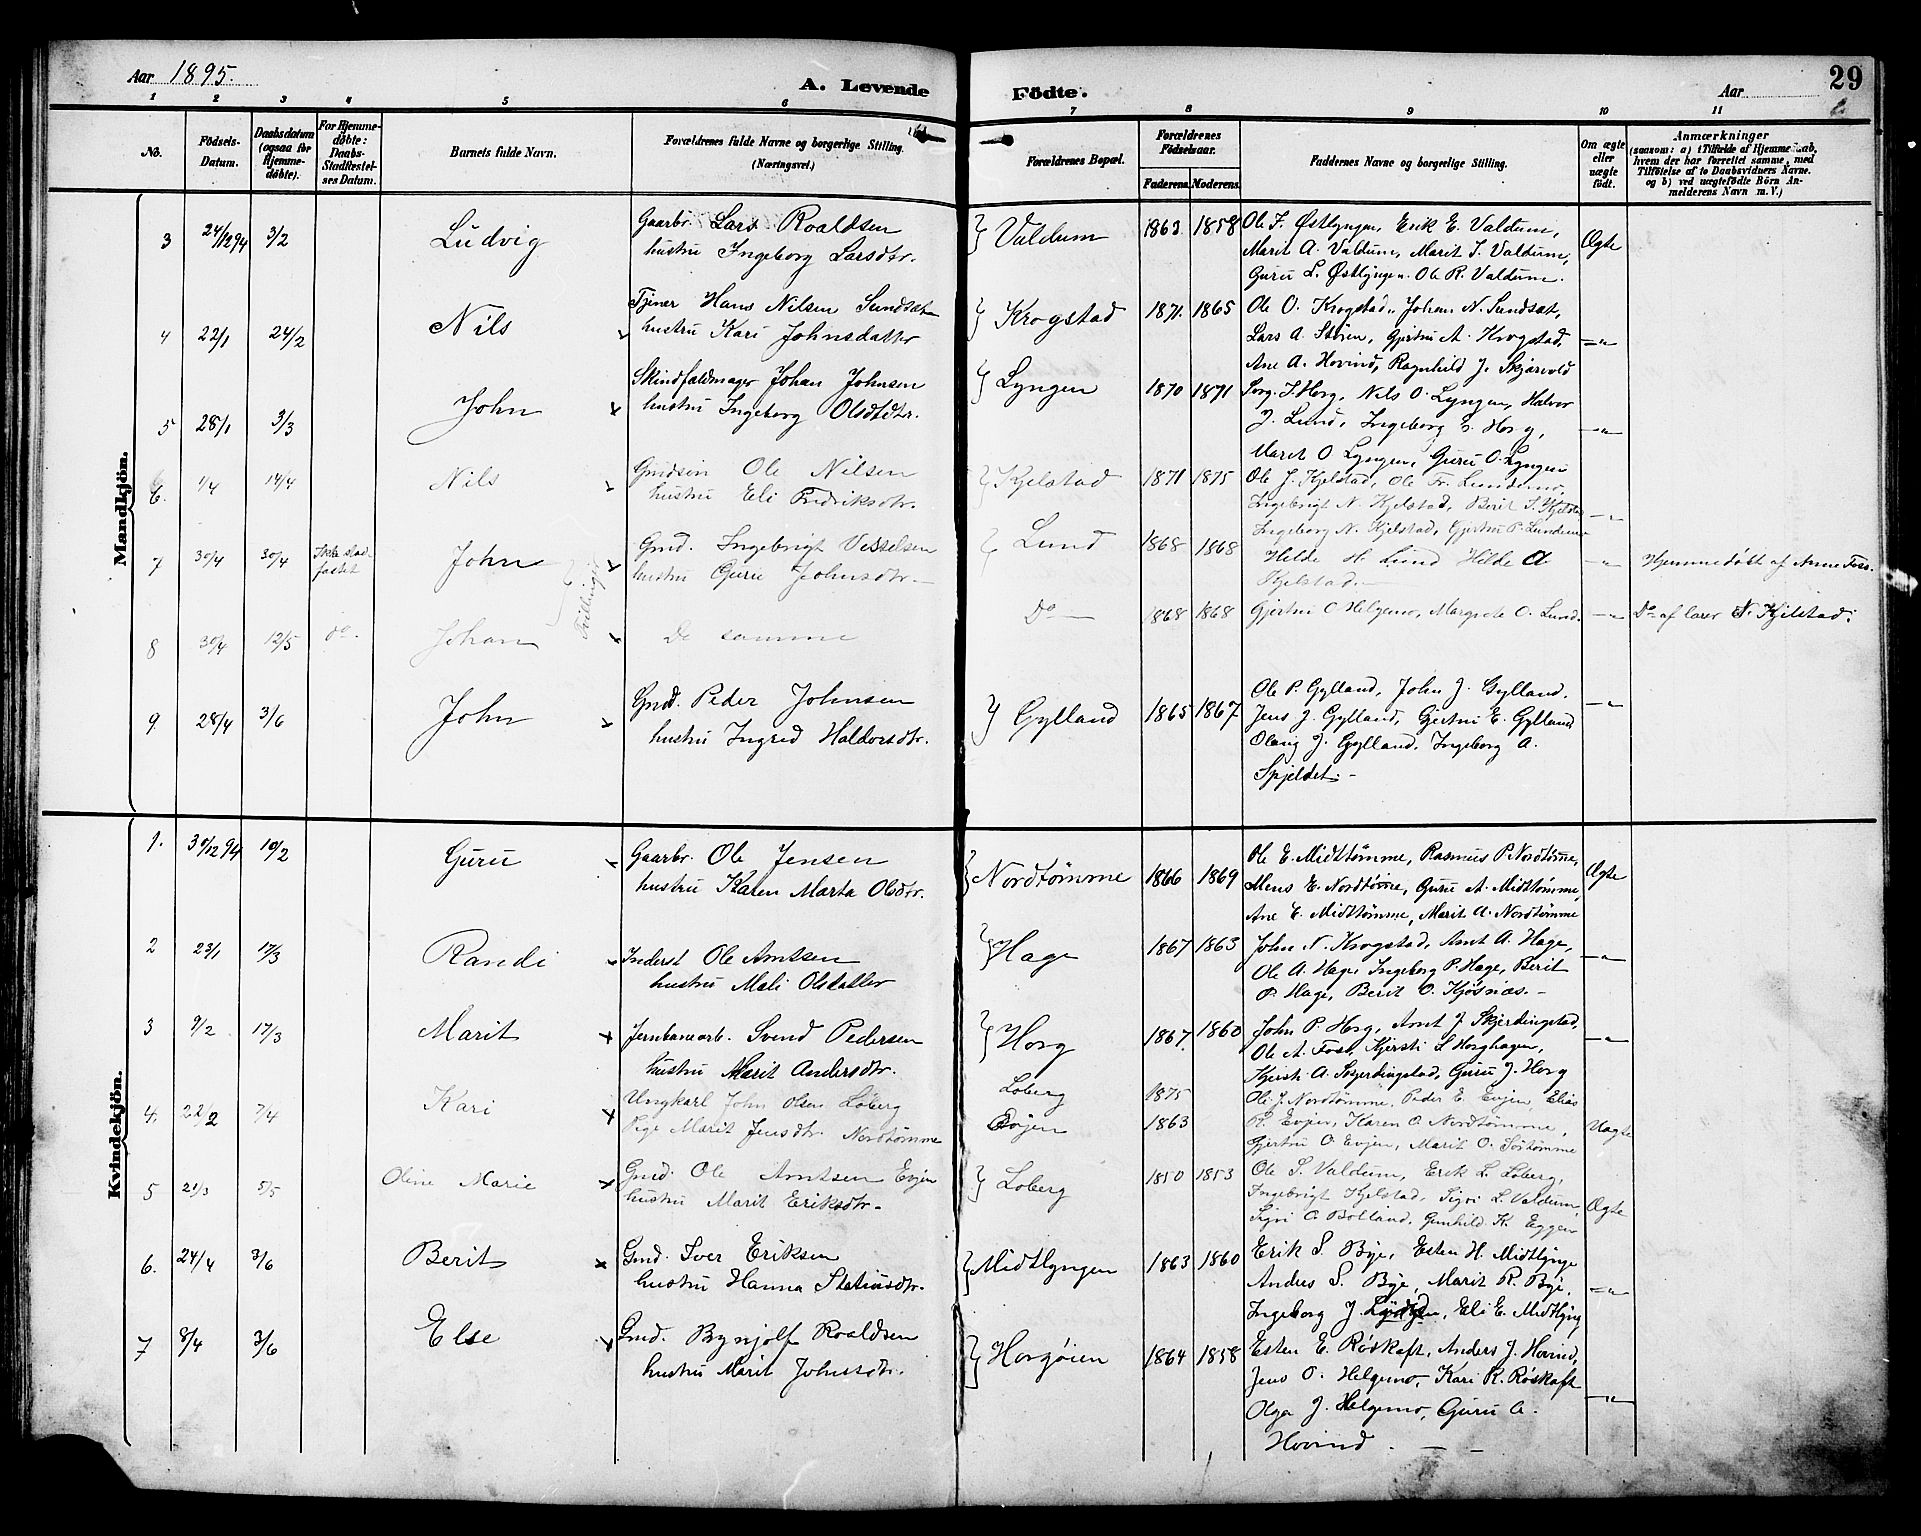 Aar 1895.
A. Levende Födte.
Aar
29
1 2 3 4 5 6 7 8 9 10 11
No.
Födsels-Datum.
Daabsdatum (ogsaa for Hjemme-döbte).
For Hjemme-döbte: Daabs-Stadfæstel-ses Datum.
Barnets fulde Navn.
Forældrenes fulde Navne og borgerlige Stilling. (Næringsvei.)
Forældrenes Bopæl.
Forældrenes Födselsaar.
Faderens. Moderens.
Faddernes Navne og borgerlige Stilling.
Om ægte eller uægte født.
Anmærkninger
(saasom: a) i Tilfælde af Hjemmedaab,
hvem der har forrettet samme, med
Tilföielse af to Daabsvidners Navne.
og b) ved uægtefödte Börn An-
melderens Navn m. V.)
Mandkjön.
3 24/12 94 3/2 Ludvig Gaarbr. Lars Roaldsen Valdum 1863 1858 Ole F. Østlyngen, Erik E. Valdum, Ægte
hustru Ingeborg Larsdtr. Marit A. Valdum, Marit I. Valdum,
Guru L. Østlyngen. Ole R. Valdum.
4 22/1 24/2 Nils Tjener Hans Nilsen Sundsæt Krogstad 1871 1865 Ole O. Krogstad, Johan N. Sundsæt,
hustru Kari Johnsdatter Lars A. Stören, Gjertru A. Krogstad, —"—
Ane A. Hovind, Ragnhild J. Skjærvold
5 28/1 3/3 John Skindfaldmager Johan Johnsen Lyngen 1870 1871 J. Horg, Nils O. Lyngen, Halvor
hustru Ingeborg Olsdtr. J. Lund, Ingeborg Horg, —"—
Maret O. Lyngen, Guru O. Lyngen
6. 1/4 14/4 Nils Gmdsøn Ole Nilsen Kjelstad 1871 1875 Ole J. Kjelstad, Ole Fr. Lundemo,
hustru Eli Fredriksdtr. Ingebrigt N. Kjelstad, Berit I. Kjelstad —"—
Ingeborg N. Kjelstad, Gjertru P. Lundemo
7 30/4 30/4 Ikke stad-fæstet John Gmd. Ingebrigt Vesselsen Lund 1868 1868 Helde H. Lund Hilde A —"— Hjemmedøbt af Anne Foss.
hustru Guru Johnsdtr. Kjelstad.
Tvillinger
8 30/4 12/5 do. Johan De samme Do 1868 1868 Gjertru O Helgemo, Margrete O. Lund. —"— Do af lærer N. Kjelstad.
9. 28/4 3/6 John Gmd. Peder Johnsen Gylland 1865 1867 Ole P. Gylland, John J. Gylland, —"—
hustru Ingred Haldorsdtr. Jens J. Gylland, Gjertru E. Gylland
Olaug J. Gylland, Ingeborg A.
Spjeldet.
Kvindekjön.
1. 30/12 94 10/2 Guru Gaarbr. Ole Jensen Nordtømme 1866 1869 Ole E. Midttømme, Rasmus P. Nordtømme, Ægte
hustru Karen Marta Olsdtr. Mens E. Nordtømme, Guru A. Midttømme,
Ane E. Midttømme, Marit A. Nordtømme
2 23/1 17/3 Randi Inderst Ole Arntsen Hage 1867 1863 John N. Krogstad, Arnt A. Hage, —"—
hustru Mali Olsdatter Ole A. Hage, Ingeborg P. Hage, Berit
P. Hage, Berit O. Kjøsnæs.
3 9/2 17/3 Marit Jernbanearb. Svend Pedersen Horg 1867 1860 John P. Horg, Arnt J. Skjerdingstad, —"—
hustru Marit Andersdtr. Ole A. Foss, Kjersti L Horghagen,
Kjersti A. Skjerdingstad, Guru J. Horg
4. 22/2 7/4 Kari Ungkarl John Olsen Loberg Loberg 1875 Ole J. Nordtømme, Peder E. Evjen, Elias
Pige Marit Jensdtr. Nordtømme Evjen 1863 R. Evjen, Karen O. Nordtømme, Uægte
Gjertru O. Evjen, Marit O. Søtømme
5 21/3 5/5 Oline Marie Gmd. Ole Arntsen Evjen Loberg 1850 1853 Ole S. Valdum, Erik L. Loberg,
hustru Marit Eriksdtr. Ingebrigt Kjelstad, Sigri L. Valdum, Ægte
Sigri O. Bolland, Gunhild K. Eggen
6. 24/4 3/6 Berit Gmd. Iver Eriksen Midtlyngen 1863 1860 Erik S. Bye, Esten H. Midtlynge
hustru Hanna Statiusdtr. Andres S. Bye, Marit R. Bye, —"—
Ingeborg J. Eli E. Midtlyng
7 8/4 3/6 Else Gmd. Brynjolf Roaldsen Horgøien 1864 1858 Esten E. Røskaft, Anders J. Hovind,
hustru Marit Johnsdtr. Jens O. Helgemo, Kari R. Røskaft
Olga J. Helgemo, Guru A. —"—
Hovind.